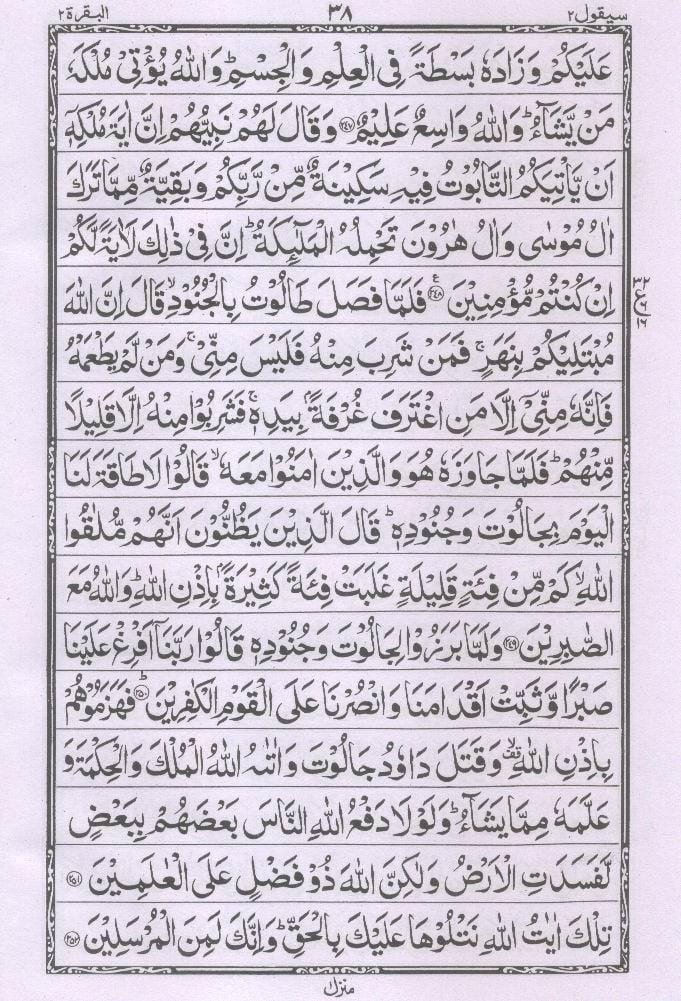 سيقول ٢ ٣٨ البقرة ٢
عَلَيْكُمْ وَزَادَهٗ بَسْطَةً فِى الْعِلْمِ وَالْجِسْمِ ؕ وَاللّٰهُ يُؤْتِىْ مُلْكَهٗ
مَنْ يَّشَآءُ ؕ وَاللّٰهُ وَاسِعٌ عَلِيْمٌ ﴿٢٤٧﴾ وَقَالَ لَهُمْ نَبِيُّهُمْ اِنَّ اٰيَةَ مُلْكِهٖۤ
اَنْ يَّاْتِيَكُمُ التَّابُوْتُ فِيْهِ سَكِيْنَةٌ مِّنْ رَّبِّكُمْ وَبَقِيَّةٌ مِّمَّا تَرَكَ
اٰلُ مُوْسٰى وَاٰلُ هٰرُوْنَ تَحْمِلُهُ الْمَلٰٓئِكَةُ ؕ اِنَّ فِىْ ذٰلِكَ لَاٰيَةً لَّكُمْ
اِنْ كُنْتُمْ مُّؤْمِنِيْنَ ﴿٢٤٨﴾ ع فَلَمَّا فَصَلَ طَالُوْتُ بِالْجُنُوْدِ ۙ قَالَ اِنَّ اللّٰهَ
مُبْتَلِيْكُمْ بِنَهَرٍ ۚ فَمَنْ شَرِبَ مِنْهُ فَلَيْسَ مِنِّىْ ۚ وَمَنْ لَّمْ يَطْعَمْهُ
فَاِنَّهٗ مِنِّىْۤ اِلَّا مَنِ اغْتَرَفَ غُرْفَةًۢ بِيَدِهٖ ۚ فَشَرِبُوْا مِنْهُ اِلَّا قَلِيْلًا
مِّنْهُمْ ؕ فَلَمَّا جَاوَزَهٗ هُوَ وَالَّذِيْنَ اٰمَنُوْا مَعَهٗ ۙ قَالُوْا لَا طَاقَةَ لَنَا
الْيَوْمَ بِجَالُوْتَ وَجُنُوْدِهٖ ؕ قَالَ الَّذِيْنَ يَظُنُّوْنَ اَنَّهُمْ مُّلٰقُوا
اللّٰهِ ۙ كَمْ مِّنْ فِئَةٍ قَلِيْلَةٍ غَلَبَتْ فِئَةً كَثِيْرَةًۢ بِاِذْنِ اللّٰهِ ؕ وَاللّٰهُ مَعَ
الصّٰبِرِيْنَ ﴿٢٤٩﴾ وَلَمَّا بَرَزُوْا لِجَالُوْتَ وَجُنُوْدِهٖ قَالُوْا رَبَّنَاۤ اَفْرِغْ عَلَيْنَا
صَبْرًا وَّثَبِّتْ اَقْدَامَنَا وَانْصُرْنَا عَلَى الْقَوْمِ الْكٰفِرِيْنَ ﴿٢٥٠﴾ ؕ فَهَزَمُوْهُمْ
بِاِذْنِ اللّٰهِ ۙ قف وَقَتَلَ دَاوٗدُ جَالُوْتَ وَاٰتٰىهُ اللّٰهُ الْمُلْكَ وَالْحِكْمَةَ وَ
عَلَّمَهٗ مِمَّا يَشَآءُ ؕ وَلَوْلَا دَفْعُ اللّٰهِ النَّاسَ بَعْضَهُمْ بِبَعْضٍ
لَّفَسَدَتِ الْاَرْضُ وَلٰكِنَّ اللّٰهَ ذُوْ فَضْلٍ عَلَى الْعٰلَمِيْنَ ﴿٢٥١﴾
تِلْكَ اٰيٰتُ اللّٰهِ نَتْلُوْهَا عَلَيْكَ بِالْحَقِّ ؕ وَاِنَّكَ لَمِنَ الْمُرْسَلِيْنَ ﴿٢٥٢﴾
منزل